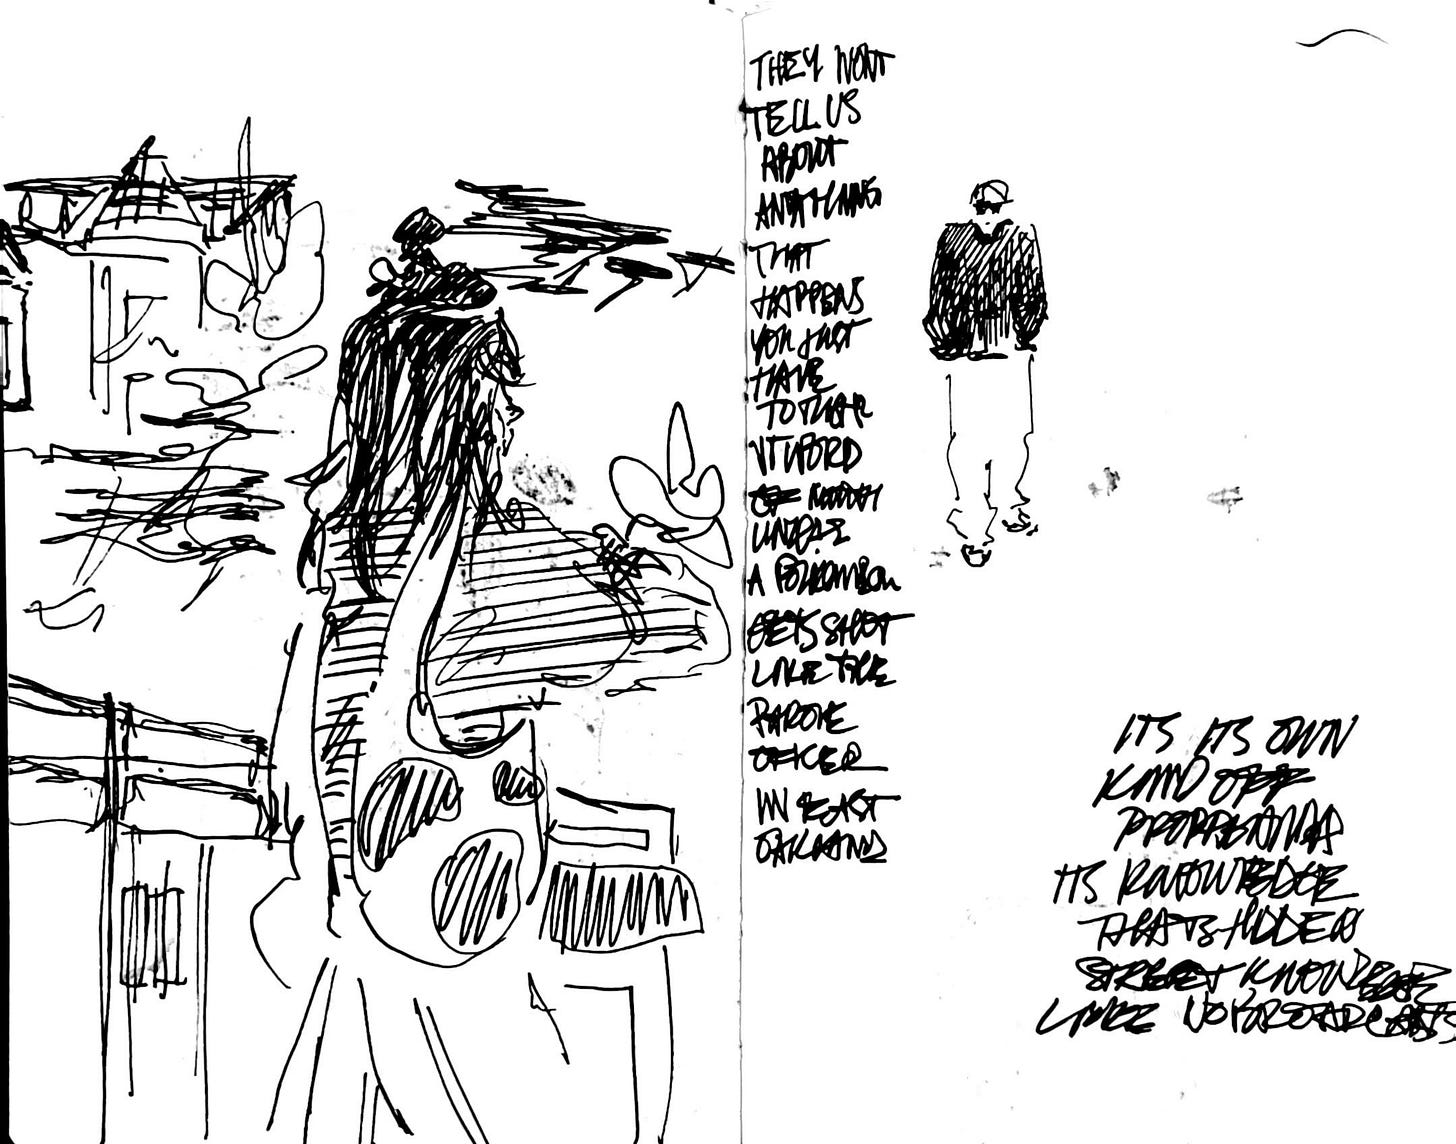 THEY WONT
TELL US
ABOUT
ANYTHING
THAT
HAPPENS
YOU JUST
HAVE
TO THAT
WORD
OF MOUTH
UNLESS
A POLICEMAN
GETS SHOT
LIKE THE
PAROLE
OFFICER
IN EAST
OAKLAND
ITS ITS OWN
KIND OFF
ITS KNOWLEDGE
THATS HIDDEN
STREET KNOWLEDGE
LIKE NO BROADCASTS